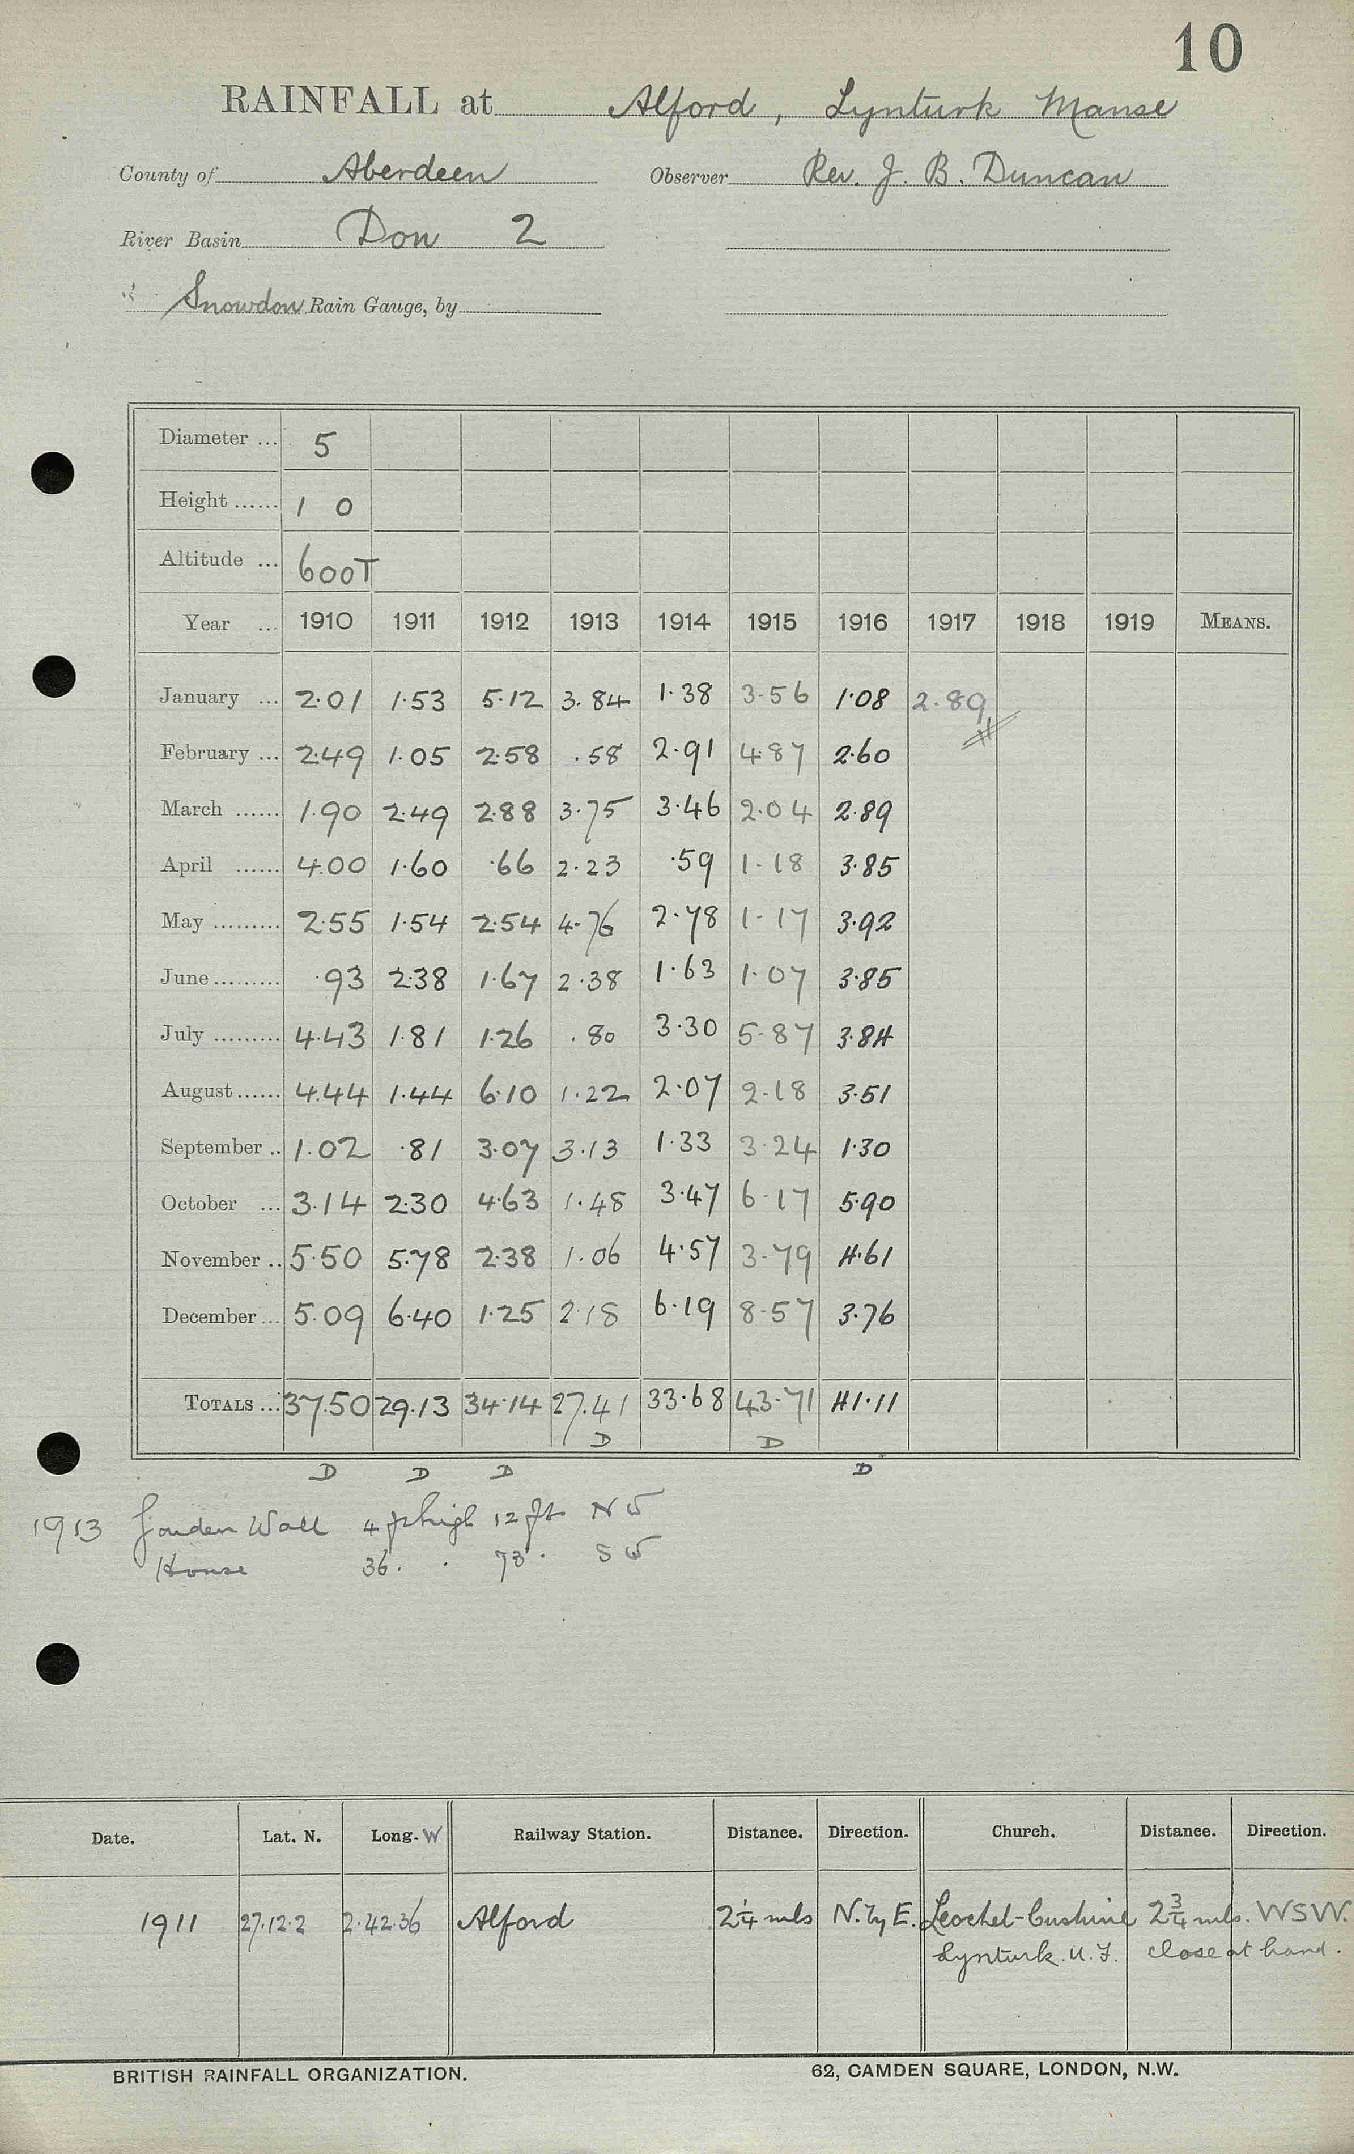 10
RAINFALL at Alford, Lynturk Manse
County of Aberdeen Observer Rev. J. B. Duncan
River Basin Don 2
Snowdon Rain Gauge, by
Diameter ... 5
Height ...... 1 0
Altitude ... 600T
Year ... 1910 1911 1912 1913 1914 1915 1916 1917 1918 1919 MEANS.
January ... 2.01 1.53 5.12 3.84 1.38 3.56 1.08 2.89
February ... 2.49 1.05 2.58 .58 2.91 4.87 2.60
March ...... 1.90 2.49 2.88 3.75 3.46 2.04 2.89
April ...... 4.00 1.60 .66 2.23 .59 1.18 3.85
May ......... 2.55 1.54 2.54 4.76 2.78 1.17 3.92
June ......... .93 2.38 1.67 2.38 1.63 1.07 3.85
July ......... 4.43 1.81 1.26 .80 3.30 5.87 3.84
August ...... 4.44 1.44 6.10 1.22 2.07 2.18 3.51
September .. 1.02 .81 3.07 3.13 1.33 3.24 1.30
October ... 3.14 2.30 4.63 1.48 3.47 6.17 5.90
November .. 5.50 5.78 2.38 1.06 4.57 3.79 4.61
December ... 5.09 6.40 1.25 2.18 6.19 8.57 3.76
TOTALS ... 37.50 29.13 34.14 27.41 33.68 43.71 41.11
D D
D D D D
1913 Garden Wall 4 ft high 12 ft NW
House 36 . . 73 . SW
Date. Lat. N. Long. W Railway Station. Distance. Direction. Church. Distance. Direction.
1911 27.12.2 2.42.36 Alford 2¼ mls N. by E. Leochel-Cushnie 2¾ mls. WSW.
Lynturk U.F. close at hand.
BRITISH RAINFALL ORGANIZATION. 62, CAMDEN SQUARE, LONDON, N.W.